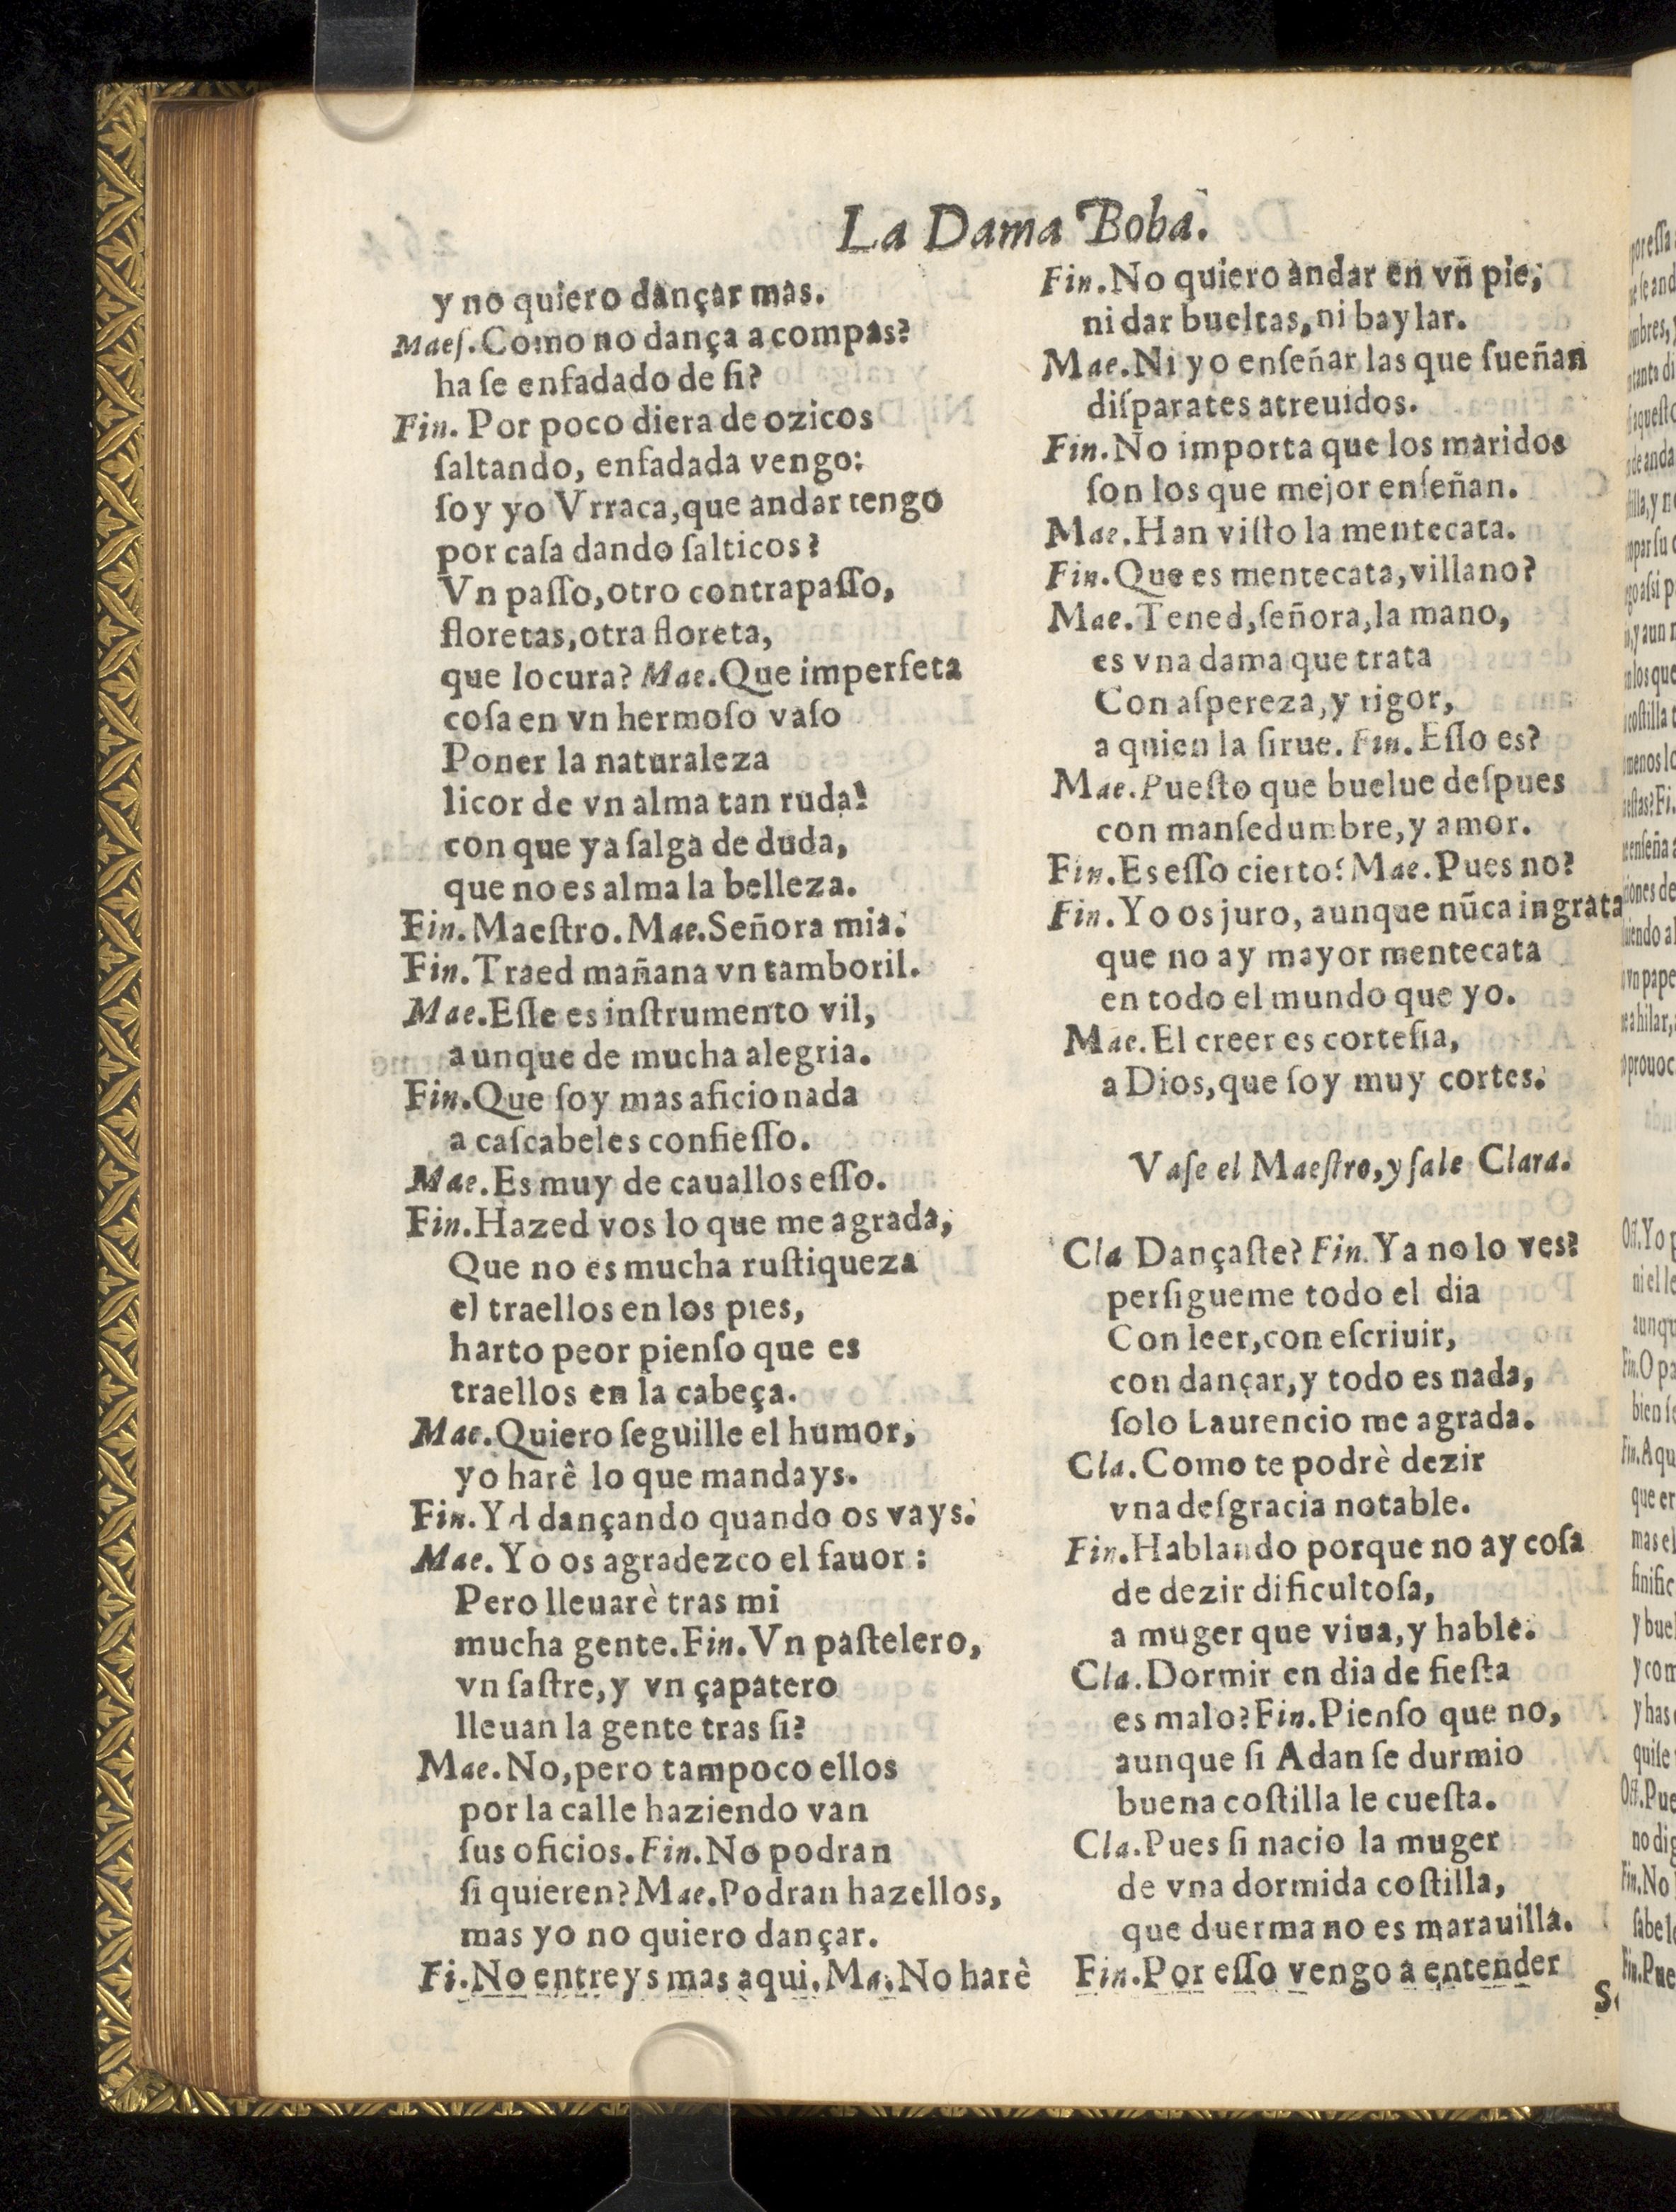 La Dama Boba.
y no quiero dançar mas.
Maeſ. Como no dança a compas?
ha ſe enfadado de ſi?
Fin. Por poco diera de ozicos
ſaltando, enfadada vengo:
ſoy yo Vrraca, que andar tengo
por caſa dando ſalticos?
Vn paſſo, otro contrapaſſo,
floretas, otra floreta,
que locura? Mae. Que imperfeta
coſa en vn hermoſo vaſo
Poner la naturaleza
licor de vn alma tan ruda!
con que ya ſalga de duda,
que no es alma la belleza.
Fin. Maeſtro. Mae. Señora mia.
Fin. Traed mañana vn tamboril.
Mae. Eſſe es inſtrumento vil,
aunque de mucha alegria.
Fin. Que ſoy mas aficionada
a caſcabeles confieſſo.
Mae. Es muy de cauallos eſſo.
Fin. Hazed vos lo que me agrada,
Que no es mucha ruſtiqueza
el traellos en los pies,
harto peor pienſo que es
traellos en la cabeça.
Mae. Quiero ſeguille el humor,
yo harê lo que mandays.
Fin. Yd dançando quando os vays.
Mae. Yo os agradezco el fauor:
Pero lleuarè tras mi
mucha gente. Fin. Vn paſtelero,
vn ſaſtre, y vn çapatero
lleuan la gente tras ſi?
Mae. No, pero tampoco ellos
por la calle haziendo van
ſus oficios. Fin. No podran
ſi quieren? Mae. Podran hazellos,
mas yo no quiero dançar.
Fi. No entreys mas aqui. Ma. No harè
Fin. No quiero andar en vn pie,
ni dar bueltas, ni baylar.
Mae. Ni yo enſeñar las que ſueñan
diſparates atreuidos.
Fin. No importa que los maridos
ſon los que mejor enſeñan.
Mae. Han viſto la mentecata.
Fin. Que es mentecata, villano?
Mae. Tened, ſeñora, la mano,
es vna dama que trata
Con aſpereza, y rigor,
a quien la ſirue. Fin. Eſſo es?
Mae. Pueſto que buelue deſpues
con manſedumbre, y amor.
Fin. Es eſſo cierto? Mae. Pues no?
Fin. Yo os juro, aunque nũca ingrata
que no ay mayor mentecata
en todo el mundo que yo.
Mae. El creer es corteſia,
a Dios, que ſoy muy cortes.
Vaſe el Maeſtro, y ſale Clara.
Cla Dançaſte? Fin. Ya no lo ves?
perſigueme todo el dia
Con leer, con eſcriuir,
con dançar, y todo es nada,
ſolo Laurencio me agrada.
Cla. Como te podrè dezir
vna deſgracia notable.
Fin. Hablando porque no ay coſa
de dezir dificultoſa,
a muger que viua, y hable.
Cla. Dormir en dia de fieſta
es malo? Fin. Pienſo que no,
aunque ſi Adan ſe durmio
buena coſtilla le cueſta.
Cla. Pues ſi nacio la muger
de vna dormida coſtilla,
que duerma no es marauilla.
Fin. Por eſſo vengo a entender